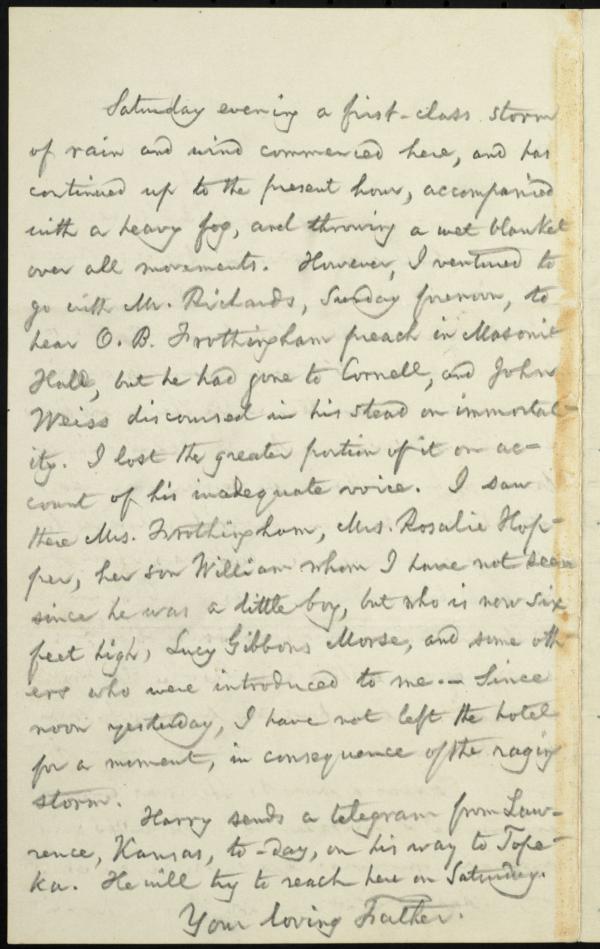 Saturday evening a first-class storm
of rain and wind commenced here, and has
continued up to the present hour, accompanied
with a heavy fog, and throwing a wet blanket
over all movements. However, I ventured to
go with Mr. Richards, Sunday forenoon, to
hear O. B. Frothingham preach in Masonic
Hall, but he had gone to Cornell, and John
Weiss discoursed in his stead on immortal-
ity. I lost the greater portion of it on ac-
count of his inadequate voice. I saw
there Mrs. Frothingham, Mrs. Rosalie Hop-
per, her son William whom I have not seen
since he was a little boy, but who is now six
feet high, Lucy Gibbons Morse, and some oth-
ers who were introduced to me.— Since
noon yesterday, I have not left the hotel
for a moment, in consequence of the raging
storm.
Harry sends a telegram from Law-
rence, Kansas, to-day, on his way to Tope-
ka. He will try to reach here on Saturday.
Your loving Father.